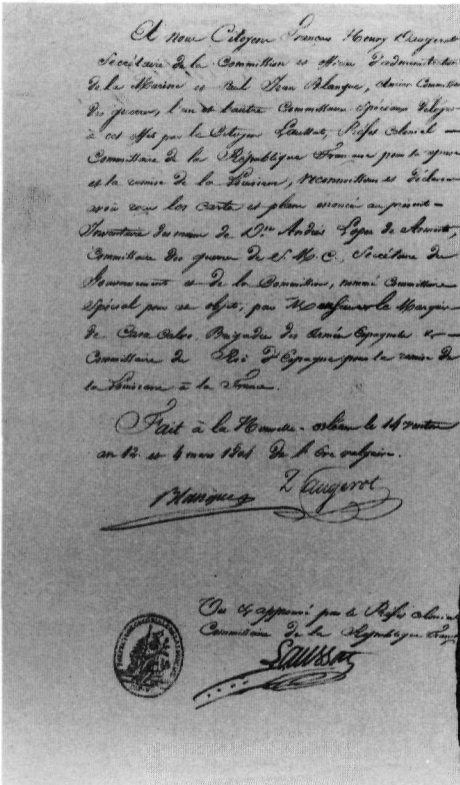 A nous Citoyens François Henry Daugerot
Secrétaire de la Commission et officier d'administration
de la Marine et Paul Jean Blanque, Commissaire
des guerres, l'un et l'autre Commissaires spéciaux délégués
à cet effet par le Citoyen Laussat, Préfet Colonial
Commissaire de la République française pour la reprise
et la remise de la Louisiane, reconnaissons et déclarons
avoir reçu les cartes et plans énoncés au présent
Inventaire des mains de Dn. André Lopez de Armesto,
Commissaire des guerres de S. M. C., Secrétaire du
Gouvernement et de la Commission, nommé Commissaire
Spécial pour cet objet, par Monsieur le Marquis
de Casa Calvo, Brigadier des armées Espagnoles &
Commissaire du Roi d'Espagne pour la remise de
la Louisiane à la france.
Fait à la Nouvelle-orléans le 14 ventôse
an 12 et 4 mars 1804 de l'ère vulgaire.
Blanque Daugerot
Vu & approuvé par le Préfet colonial
Commissaire de la République française
Laussat